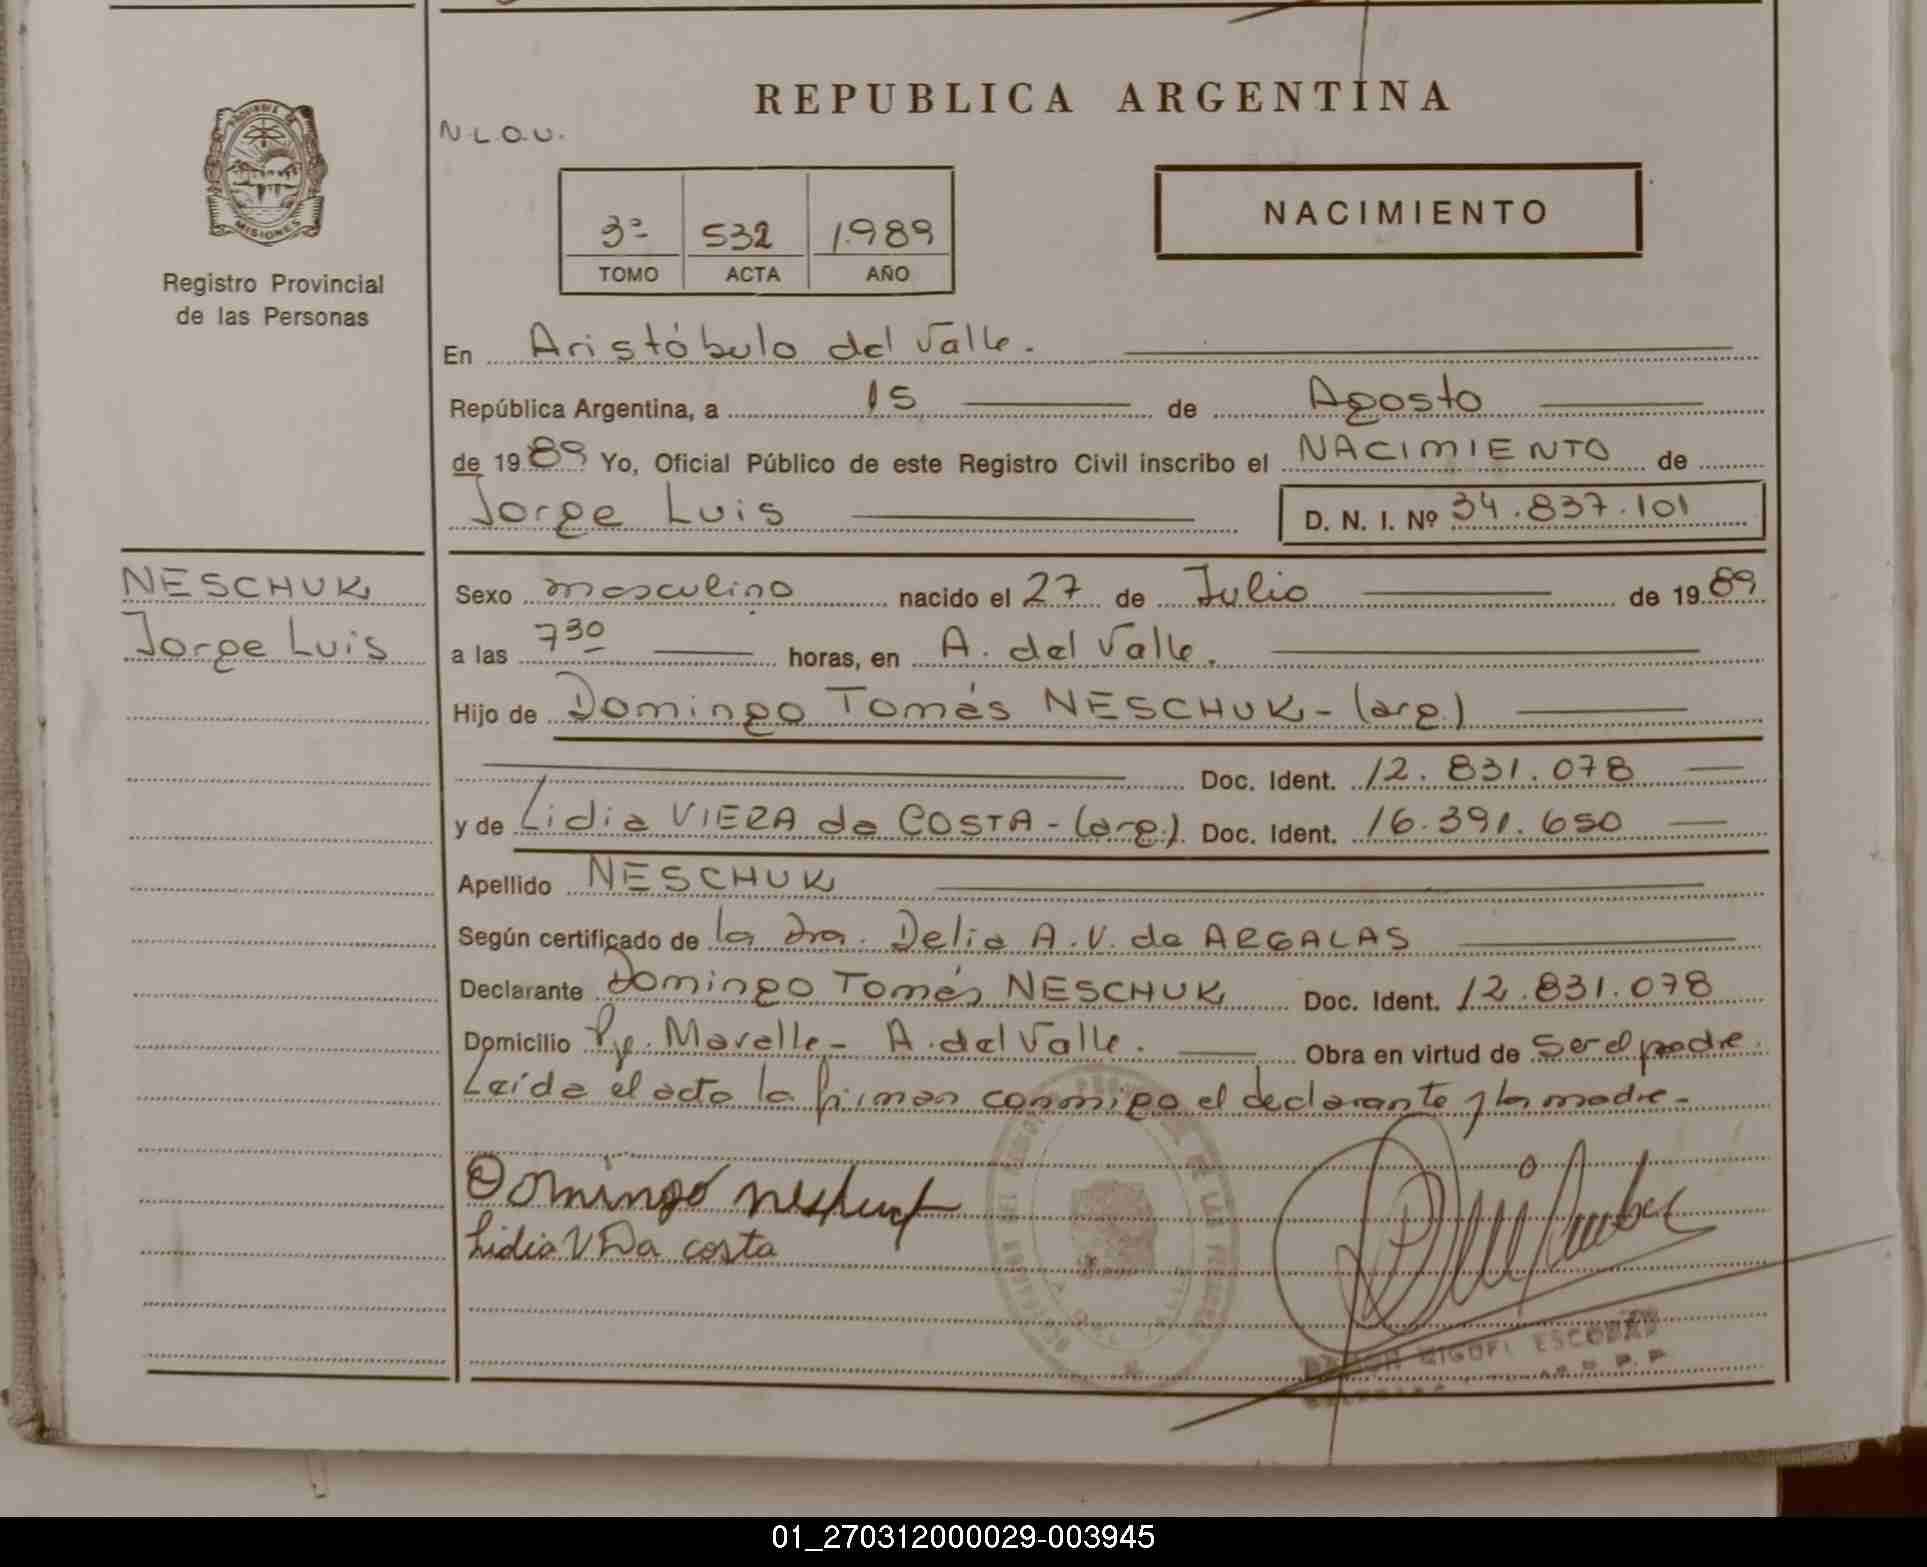 REPUBLICA ARGENTINA
N.L.O.U.
PROVINCIA DE
MISIONES
Registro Provincial
de las Personas
NACIMIENTO
3ª 532 1.989
TOMO ACTA AÑO
En Aristóbulo del Valle.
República Argentina, a 15 de Agosto
de 1989 Yo, Oficial Público de este Registro Civil inscribo el NACIMIENTO de
Jorge Luis D. N. I. Nº 34.837.101
NESCHUK
Jorge Luis
Sexo masculino nacido el 27 de Julio de 1989
a las 7 30 horas, en A. del Valle.
Hijo de Domingo Tomás NESCHUK - (arg.)
Doc. Ident. 12.831.078
y de Lidia VIERA da COSTA - (arg.) Doc. Ident. 16.391.650
Apellido NESCHUK
Según certificado de la Dra. Delia A.V. de ARGALAS
Declarante Domingo Tomás NESCHUK Doc. Ident. 12.831.078
Domicilio Pje. Mavalle - A. del Valle. Obra en virtud de ser el padre.
Leída el acta la firman conmigo el declarante y la madre -
Domingo neschuk
Lidia V Da costa
MIGUEL ESCOBAR
01_270312000029-003945